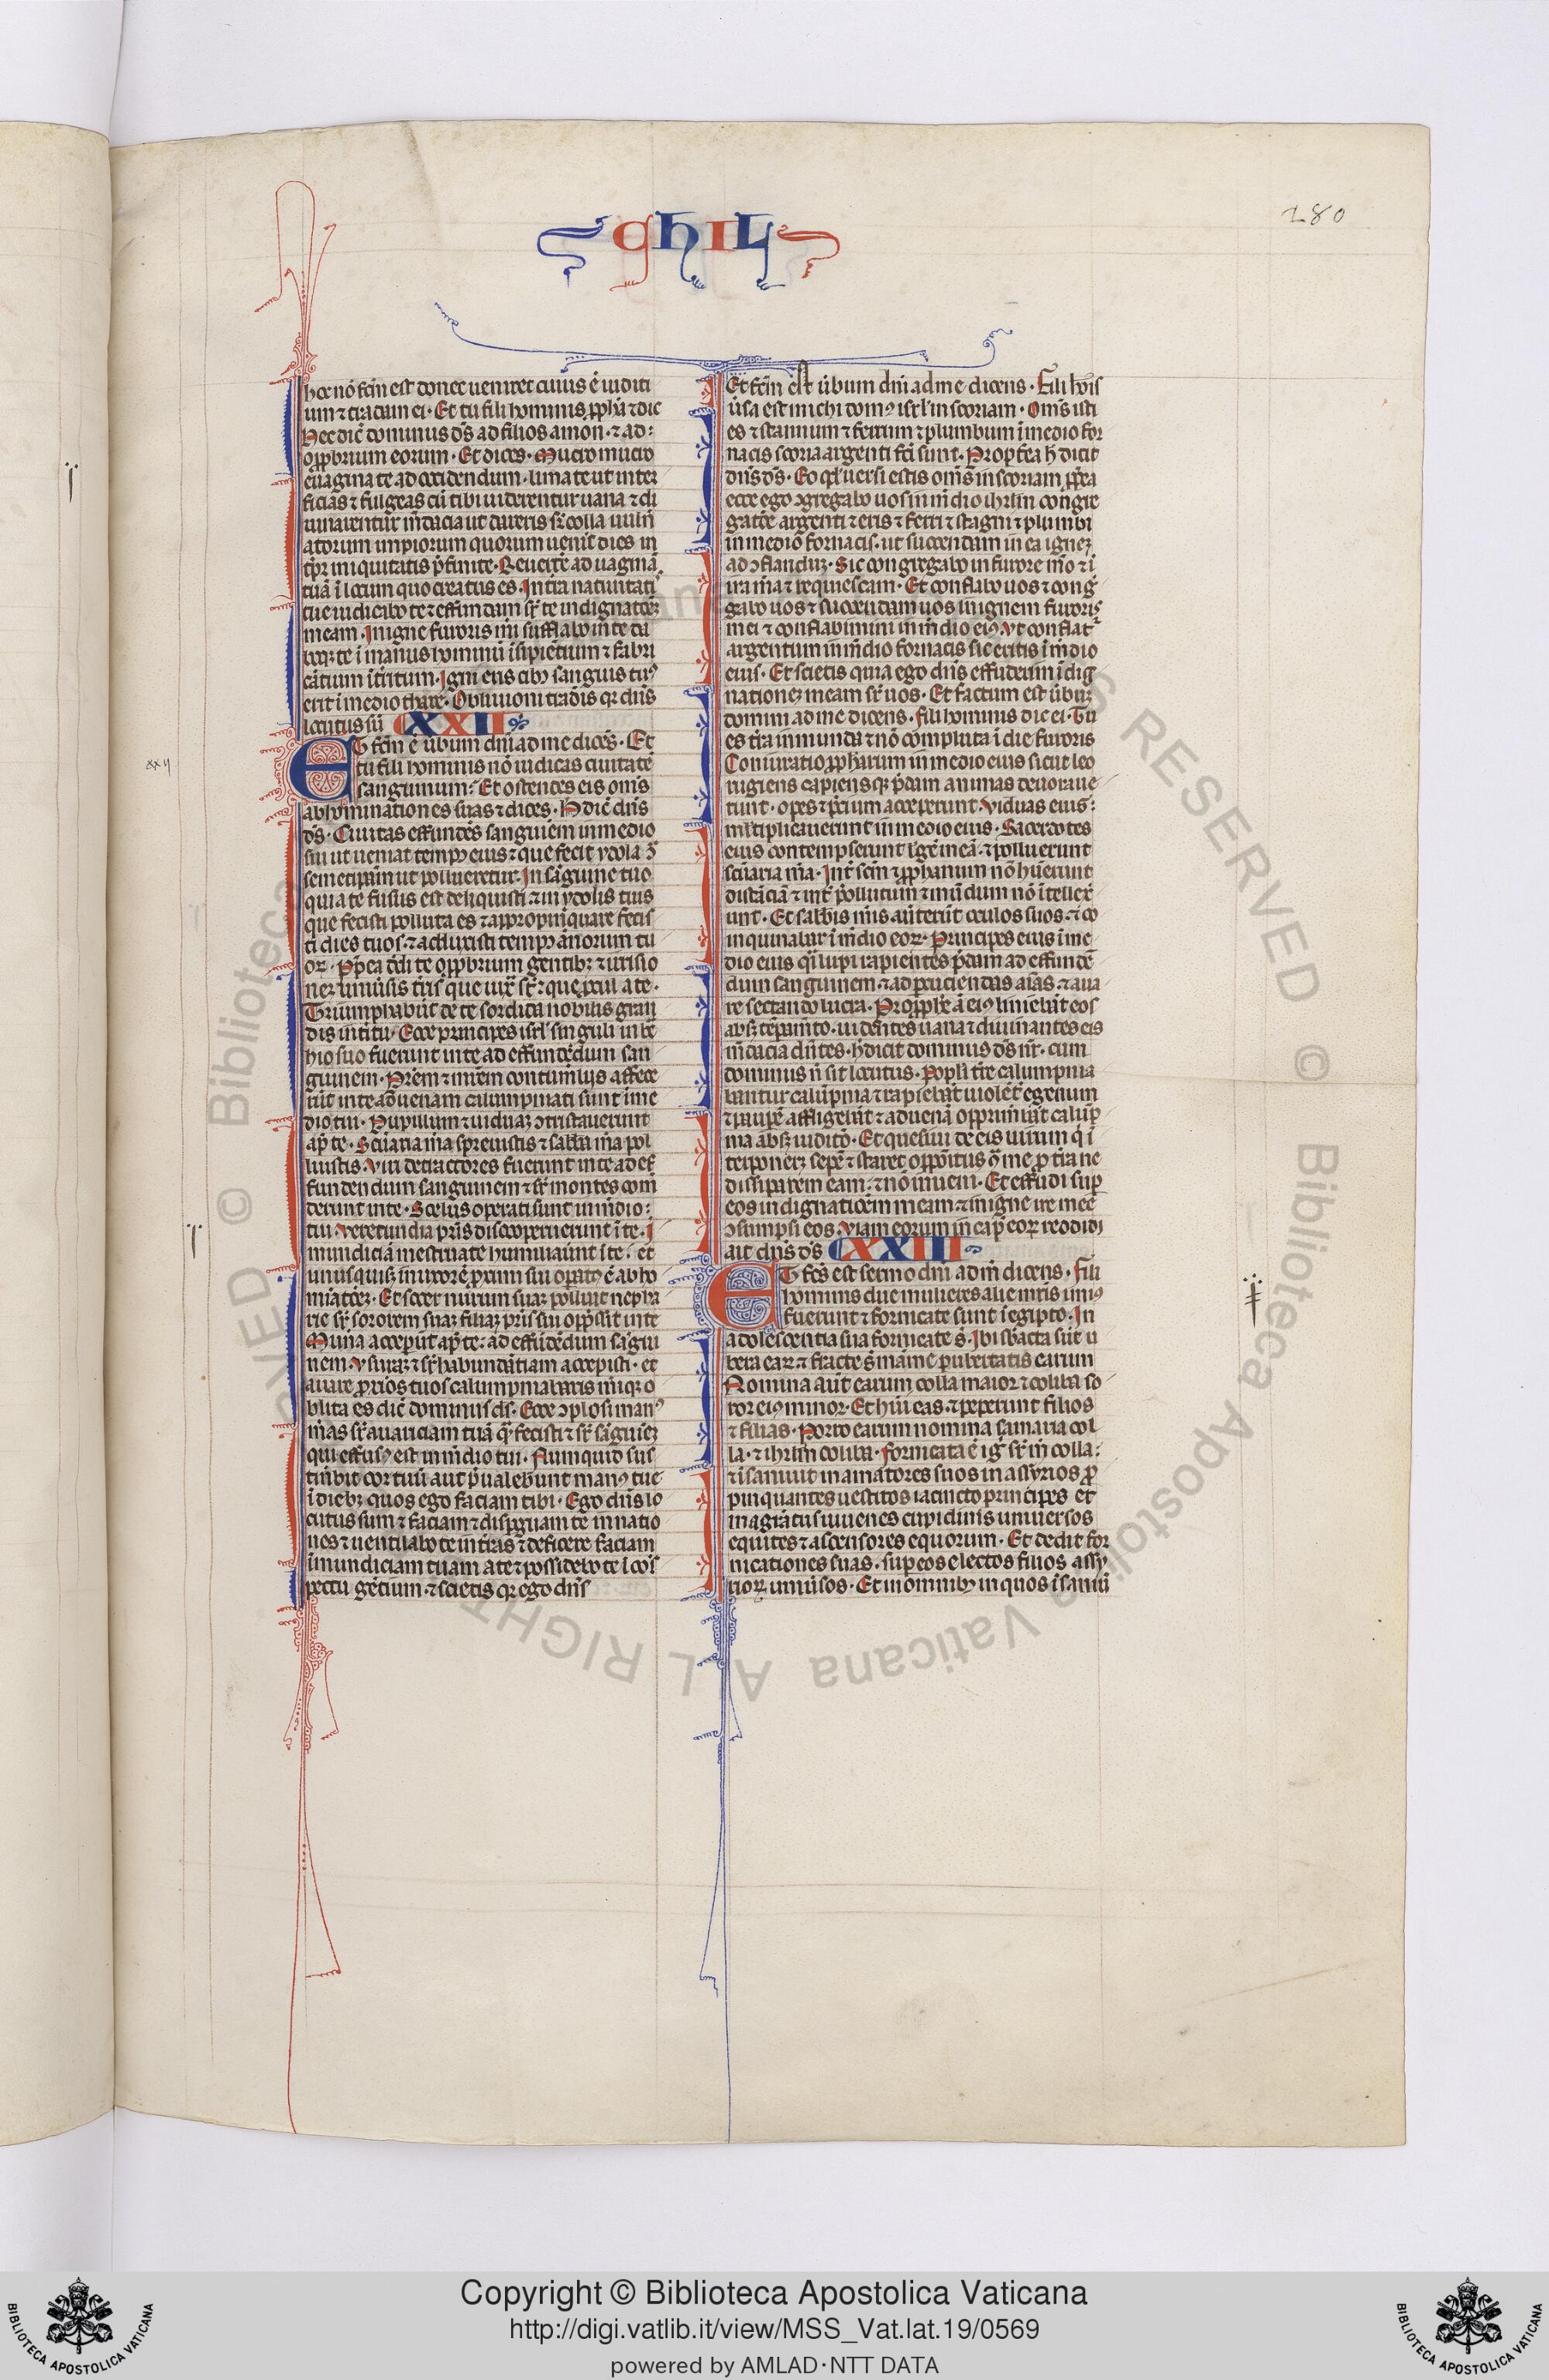 280
chiel
hoc nō fcm̄ est donec ueniret cuius ē iudici
um ⁊ tradam ei. Et tu fili hominis ꝓpha ⁊ dic
Hec dic̄ dominus dš ad filios amon. ⁊ ad
opprobrium eorum. Et dices. Mucro mucro
euagina te ad occidendum. lima te ut inter
ficias ⁊ fulgeas cū tibi uiderentur uana ⁊ di
uinarentur m̄dacia ut dareris sr̄ colla uuln̄
atorum impiorum quorum uenit dies in
tp̄r iniquitatis p̄finite. Reuertere ad uaginā
tuā ī locum quo creatus es. In tr̄a natiuitati
tue iudicabo te ⁊ effundam sr̄ te indignatōeꝫ
meam. In igne furoris mi sufflabo in te da
boqꝫ te ī manus hominū īsipiētium ⁊ fabri
cātium īteritum. Igni eris cibꝰ sanguis tuꝰ
erit ī medio tr̄re. Obliuioni tradēis qr dn̄s
locutus sū XXII
Et fcm̄ ē ūbum dn̄i ad me dices. Et
tu fili hominis nō iudicas ciuitatē
sanguinum. Et ostendes eis om̄s
xxij
abhominationes suas ⁊ dices. H dic̄ dn̄s
dš. Ciuitas effundēs sanguiēm in medio
sui ut ueniat tempꝰ eius ⁊ que fecit ydola ꝯ
semetipsam ut pollueretur. In sāguine tuo
qui a te fusus est deliquisti ⁊ in ydolis tuis
que fecisti polluta es ⁊ appropinquare fecis
ti dies tuos. ⁊ adduxisti tempꝰ ānorum tu
oꝝ. Pp̄ea dedi te opp̄brium gentibꝫ ⁊ irrisio
neꝫ uniuūsis tr̄is que iuxᵃ sr̄ ⁊ que ꝓcul a te.
Triumphabūt de te sordida nobilis gran
dis interitu. Ecce principes isrl' singuli in bra
hio suo fuerunt in te ad effundēdum san
guinem. Pr̄em ⁊ mr̄em contumlijs affece
rūt in te aduenam calumpniati sunt ī me
dio tui. Pupillum ⁊ uiduaꝫ ꝯtristauerunt
ap̄ te. Scūaria mēa spreuistis ⁊ sabba mēa pol
luistis. Viri detractores fuerunt in te ad ef
fundendum sanguinem ⁊ sr̄ montes com̄
derunt in te. Scelus operati sunt in m̄dio
tui. Verecundia pr̄is discooperuerunt ī te. I
mundiciā mestruate humiliaūnt ī te. et
unusquisqꝫ in uxorē ꝓximi sui opatꝰ ē abho
miatōeꝫ. Et socer nurum suaꝫ polluit nepha
rie sr̄ sororem suaꝫ filiaꝫ pr̄is sui opp̄ssit in te
Muna accep̄ūt ap̄ te ad effūdēdum sāgui
nem. Vsuraꝫ ⁊ sr̄habundātiam accepisti. et
auare ꝓximos tuos calumpniabaris meiqꝫ o
blita es dic̄ dominus dš. Ecce ꝯplosi manꝰ
m̄as sr̄ auariciam tuā qᵃ fecisti ⁊ sr̄ sāguieꝫ
qui effusꝰ est in m̄dio tui. Numquid sus
tin̄bit cor tuū aut p̄ualebunt manꝰ tue
ī diebꝫ quos ego faciam tibi. Ego dn̄s lo
cutus sum ⁊ faciam ⁊ dispgam te in natio
nes ⁊ uentilabo te in tr̄as ⁊ deficere faciam
īmundiciam tuam a te ⁊ possidebo te ī cōs
pectu gētium. ⁊ scietis qr ego dn̄s
Et fcm̄ est ūbum dn̄i ad me dicens. Fili hoīs
ūsa est michi domꝰ isrl' in scoriam. Om̄s isti
es ⁊ stannum ⁊ ferrum ⁊ plumbum ī medio for
nacis scoria argenti fcī sunt. Propterea h dicit
dn̄s dš. Eo qd' uersi estis om̄s in scoriam pp̄ea
ecce ego ꝯgregabo uos in m̄dio ihrlm̄ congre
gatōe argenti ⁊ eris ⁊ ferri ⁊ stagni ⁊ plumbi
in medio fornacis. ut succendam in ea igneꝫ
ad ꝯflanduꝫ. Sic congregabo in furore mēo ⁊ ī
ira mēa ⁊ requiescam. Et conflabo uos ⁊ congᵉ
gabo uos ⁊ succendam uos in ignem furoris
mei ⁊ conflabimini in m̄dio eiꝰ. Vt conflatʳ
argentum in m̄dio fornacis sic eritis ī m̄dio
eius. Et scietis quia ego dn̄s effuderim īdig
nationeꝫ meam sr̄ uos. Et factum est ūbuꝫ
domini ad me dicens. Fili hominis dic ei. Tu
es tr̄a inmunda ⁊ nō compluta ī die furoris
Coniuratio ꝓpharum in medio eius sicut leo
rugiens capiensqꝫ p̄dam animas deuoraue
runt. opes ⁊ p̄cium acceperunt. Viduas eius
ml'tiplicauerunt in medio eius. Sacerdotes
eius contempserunt legē meā. ⁊ polluerunt
scūaria mēa. Int̄ scm̄ ⁊ ꝓphanum nō hūerunt
distāciā ⁊ int̄ pollutum ⁊ mūdum nō ītellexē
unt. Et sabb'is m̄is aūterūt oculos suos. ⁊ co
inquinabar ī m̄dio eoꝝ. Principes eius ī me
dio eius q̄i lupi rapientes p̄dam ad effundē
dum sanguinem. ⁊ ad perdiciendas aīas. ⁊ aua
re sectando lucra. Proph̄e ā eiꝰ liniebāt eos
absqꝫ tēpamto. uidentes uana ⁊ diuinantes eis
m̄dacia dn̄tes. h dicit dominus dš nr̄. cum
dominus n̄ sit locutus. Popl'i tr̄re calumpnia
bantur calūpnia ⁊ rapiebāt uiolētr̄ egenum
⁊ paupē affligebāt ⁊ aduenā opprimebāt calūp
nia absqꝫ iuditō. Et quesiui de eis uirum qi ī
terponeꝫ sepē ⁊ staret oppositus ꝯ me ꝓ tr̄a ne
dissiparem eam. ⁊ nō inueni. Et effudi sup
eos indignatiōem meam. ⁊ in igne ire mee
ꝯsumpsi eos. Viam eorum in cap̄ eoꝝ reddidi
ait dn̄s dš XXIII
Et fcš est sermo dn̄i ad m̄ dicens. Fili
hominis due mulieres filie mr̄is uniꝰ
fuerunt ⁊ fornicate sunt ī egipto. In
adolescentia sua fornicate s̄. Ibi sbācta sūt u
bera eaꝝ ⁊ fracte s̄ māme pubertatis earum
Nomina aūt earum colla maior ⁊ coliba so
ror eiꝰ minor. Et hūi eas. ⁊ pepererunt filios
⁊ filias. Porro earum nomina samaria col
la. ⁊ ihrlm̄ coliba. Fornicata ē igᵗ sr̄ m̄ colla
⁊ īsaniuit in amatores suos in assirios ꝓ
pinquantes uestitos iacincto principes et
magistratus iuuenes cupidinis uniuersos
equites ⁊ ascensores equorum. Et dedit for
nicationes suas. sup eos electos filios assy
rioꝝ uniuūsos. Et in omnibꝫ in quos īsaniuī
Copyright © Biblioteca Apostolica Vaticana
http://digi.vatlib.it/view/MSS_Vat.lat.19/0569
powered by AMLAD·NTT DATA
BIBLIOTECA APOSTOLICA VATICANA
BIBLIOTECA APOSTOLICA VATICANA